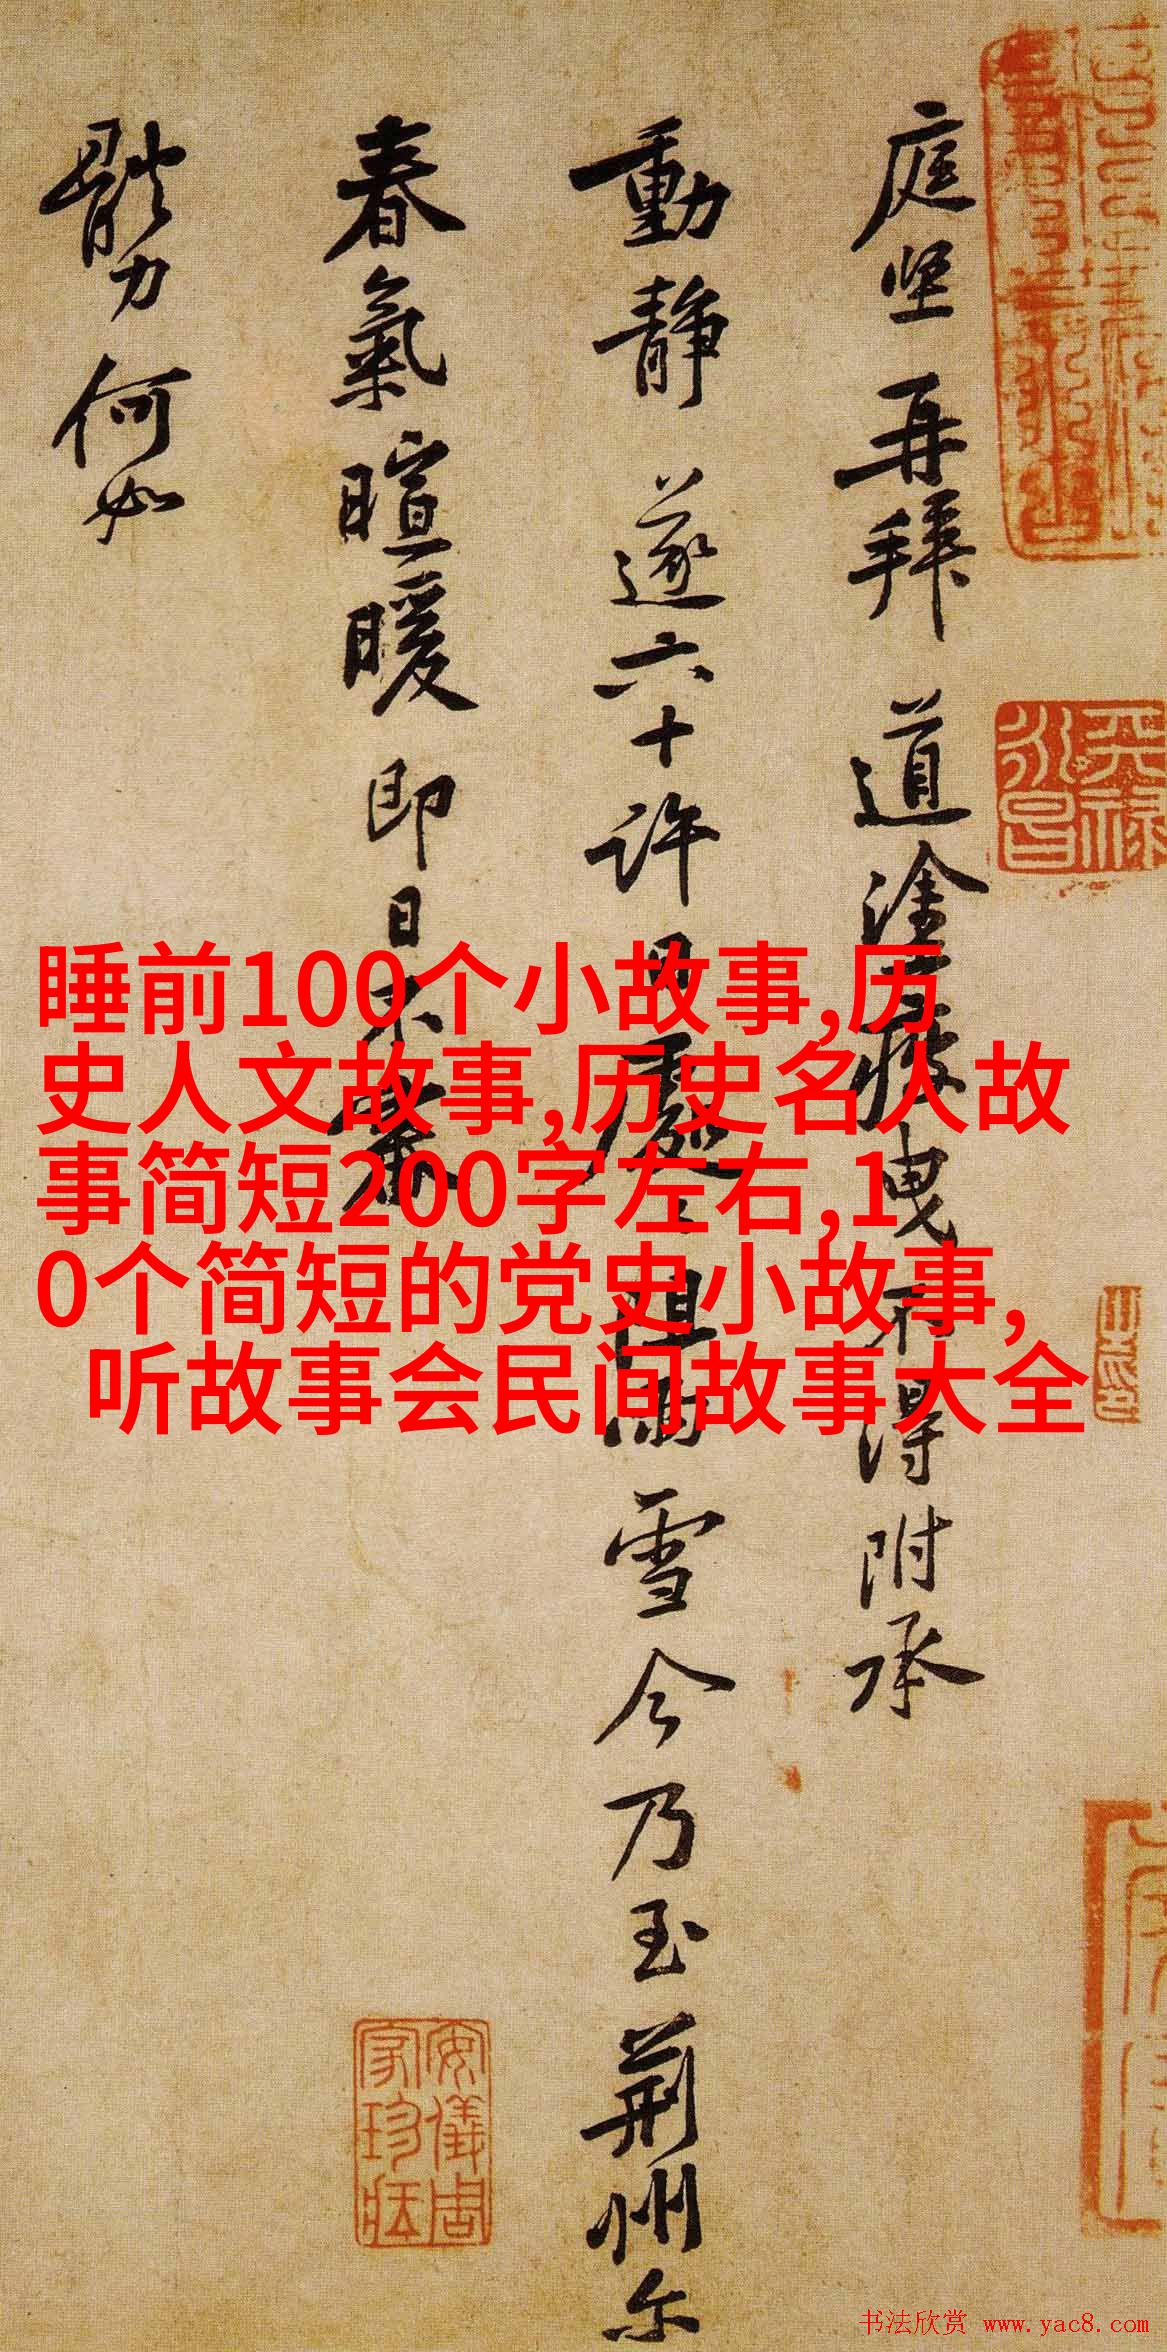 庭坚再拜道塗疲曳不得附承
動静遂六十許日處〻阻雨雪今乃至荆州尔
春氣暄暖即日不審
體力何如
睡前100个小故事,历
史人文故事,历史名人故
事简短200字左右,1
0个简短的党史小故事,
听故事会民间故事大全
天禄
永昌
安儀周
家珍藏
书法欣赏 www.yac8.com